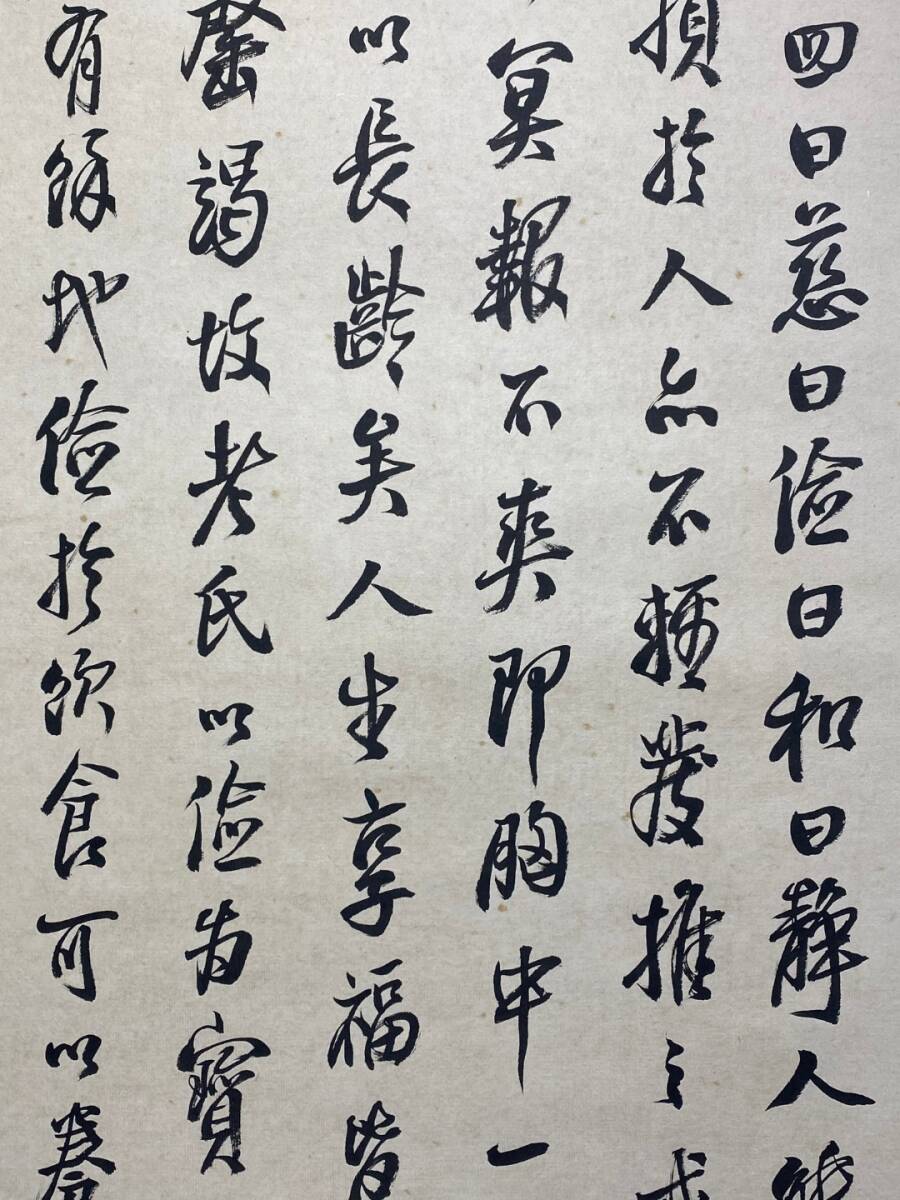 四曰慈曰儉曰和曰靜人
損於人亦不輕發推之
冥報不爽即胸中一
以長齡矣人生享福皆
罄竭故老氏以儉為寶
有餘地儉於飲食可以養